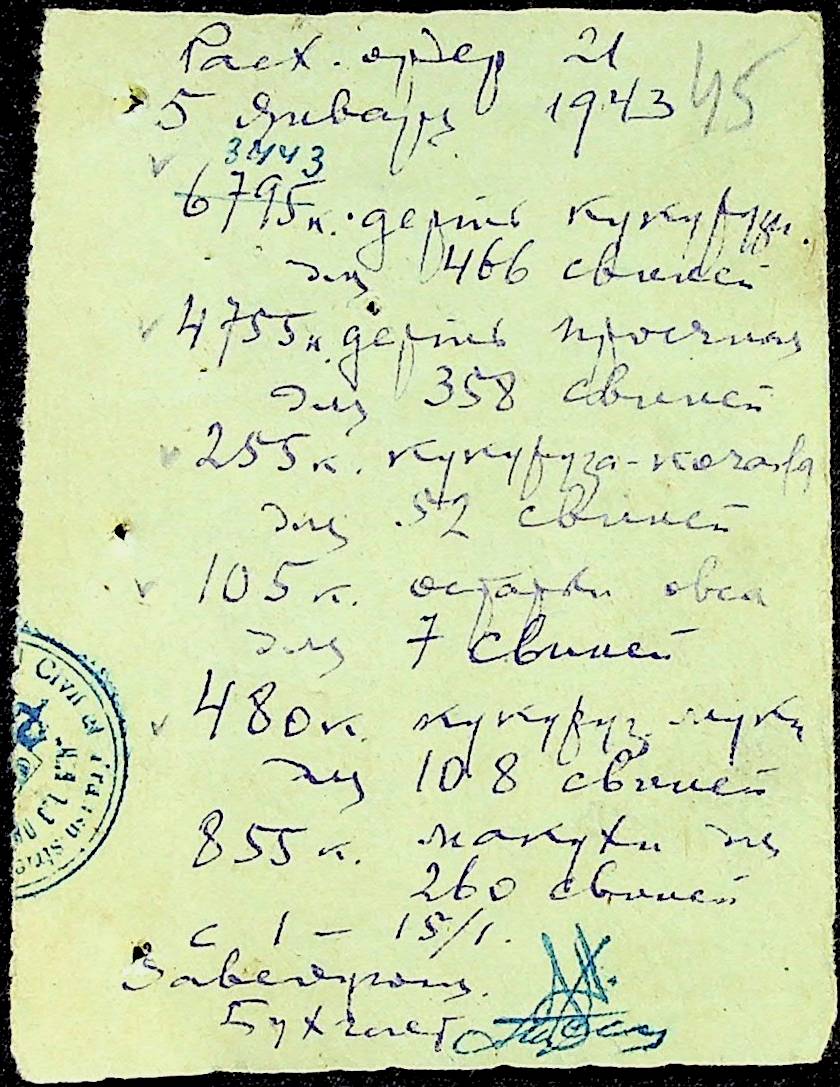 Расх. ордер 21
45
5 Января 1943
3443
6795к. дерть кукуруз.
для 466 свиней
4755к. дерть просяная
для 358 свиней
255к. кукуруза-кочаны
для 52 свиней
105к. овса
для 7 свиней
480к. кукуруз. муки
для 108 свиней
855к. макухи для
260 свиней
с 1 – 15/1.
Заведующ.
Бухгалт
Civil